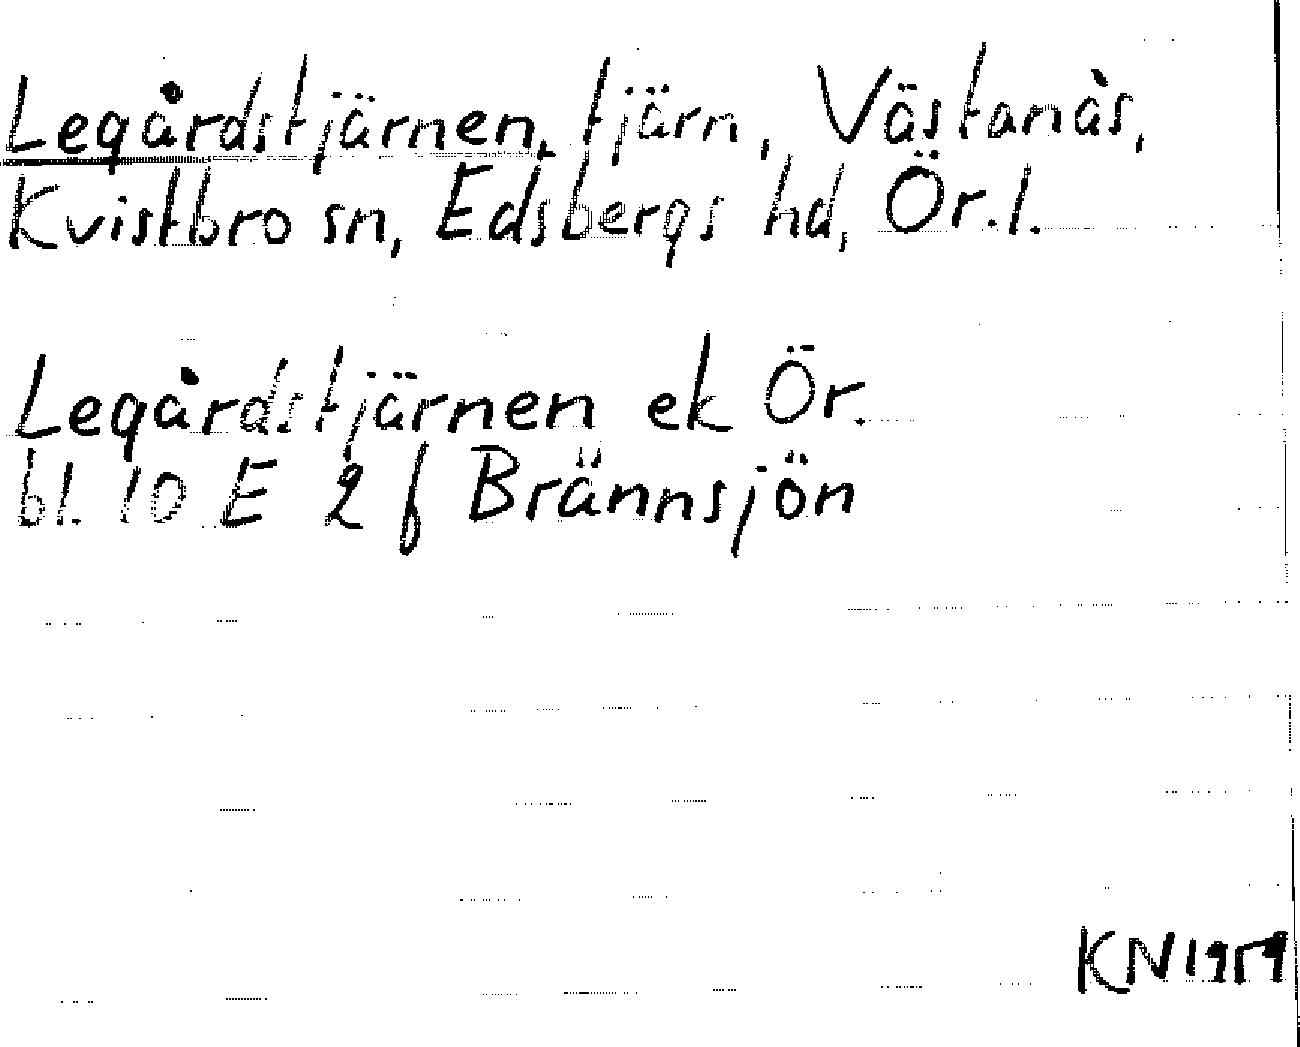 Legårdstjärnen, tjärn, Västanås,
Kvistbro sn, Edsbergs hd, Ör.l.
Legårdstjärnen ek Ör.
bl. 10 E 2 f Brännsjön
KN 1959